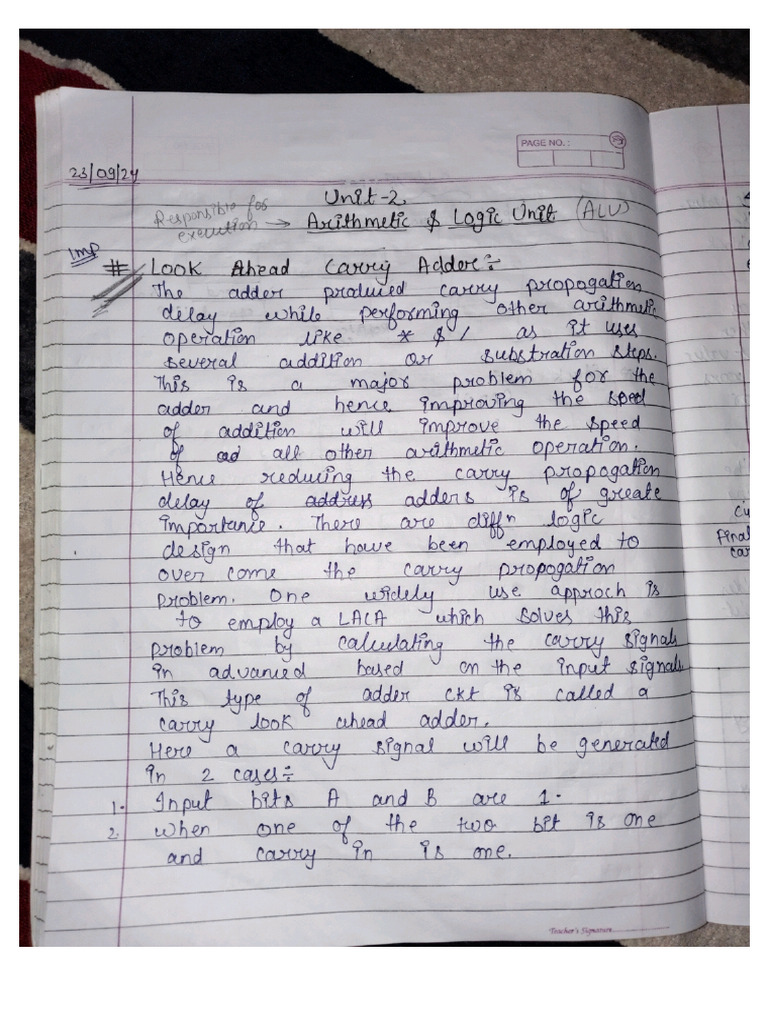 PAGE NO. :
23/09/24
Unit-2.
Responsible for
execution → Arithmetic & Logic Unit (ALU)
Imp
# Look Ahead Carry Adder:-
The adder produced carry propogation
delay while performing other arithmetic
operation like * & / as it uses
several addition or substration steps.
This is a major problem for the
adder and hence improving the speed
of addition will improve the speed
of ad all other arithmetic operation.
Hence reducing the carry propogation
delay of address adders is of greate
importance. There are diffn logic
design that have been employed to
over come the carry propogation
problem. One widely use approch is
to employ a LACA which solves this
problem by calculating the carry signals
in advanced based on the input signals
This type of adder ckt is called a
carry look ahead adder.
Here a carry signal will be generated
in 2 cases:-
1. Input bits A and B are 1.
2. When one of the two bit is one
and carry in is one.
Teacher's Signature
Final